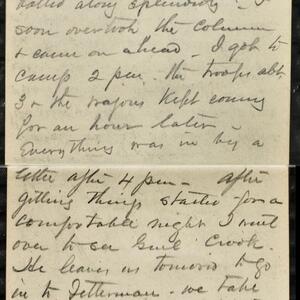 rolled along splendidly -
soon overtook the column
& came on ahead. I got to
camp 2 p.m. the troops abt.
3 & the wagons kept coming
for an hour later -
Everything was in by a
little after 4 p.m - after
getting things started for a
comfortable night I went
over to see Genl. Crook.
He leaves us tomorro to go
in to Fetterman. we take